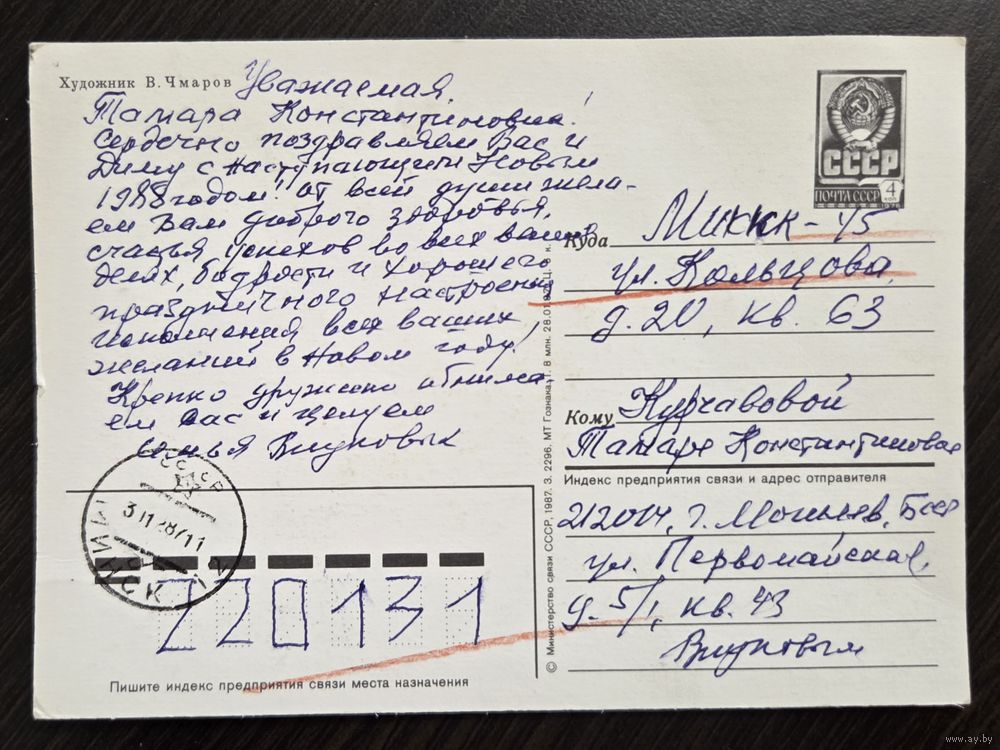 Художник В. Чмаров
Уважаемая
Тамара Константиновна!
Сердечно поздравляем Вас и
Диму с наступающим Новым
1988 годом! От всей души жела-
ем Вам доброго здоровья,
счастья успехов во всех ваших
делах, бодрости и хорошего
праздничного настроения
исполнения всех ваших
желаний в Новом году!
Крепко дружески обнима
ем вас и целуем
семья Внуковых
СССР
ПОЧТА СССР
4
КОП
Куда Минск-45
ул. Кольцова
д. 20, кв. 63
Кому Курчавовой
Тамаре Константиновне
Индекс предприятия связи и адрес отправителя
212014, г. Могилев, БССР
ул. Первомайская,
д. 5/1, кв. 43
Внуковым
СССР
МИНСК
220131
Пишите индекс предприятия связи места назначения
© Министерство связи СССР, 1987. З. 2296. МТ Гознака.
www.ay.by